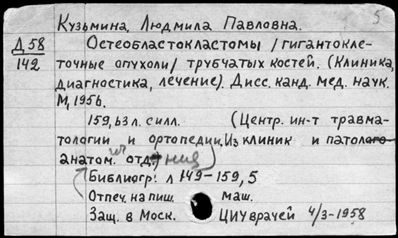 5
Кузьмина, Людмила Павловна.
Д 58
142
Остеобластокластомы /гигантокле-
точные опухоли/ трубчатых костей. (Клиника,
диагностика, лечение). Дисс. канд. мед. наук.
М, 1956.
159, 63 л. силл. (Центр. ин-т травма-
тологии и ортопедии. Из клиник и патолого-
анатом. отд.)
Библиогр: л 149-159, 5
Отпеч. на пиш. маш.
Защ. в Моск. ЦИУ врачей 4/3-1958